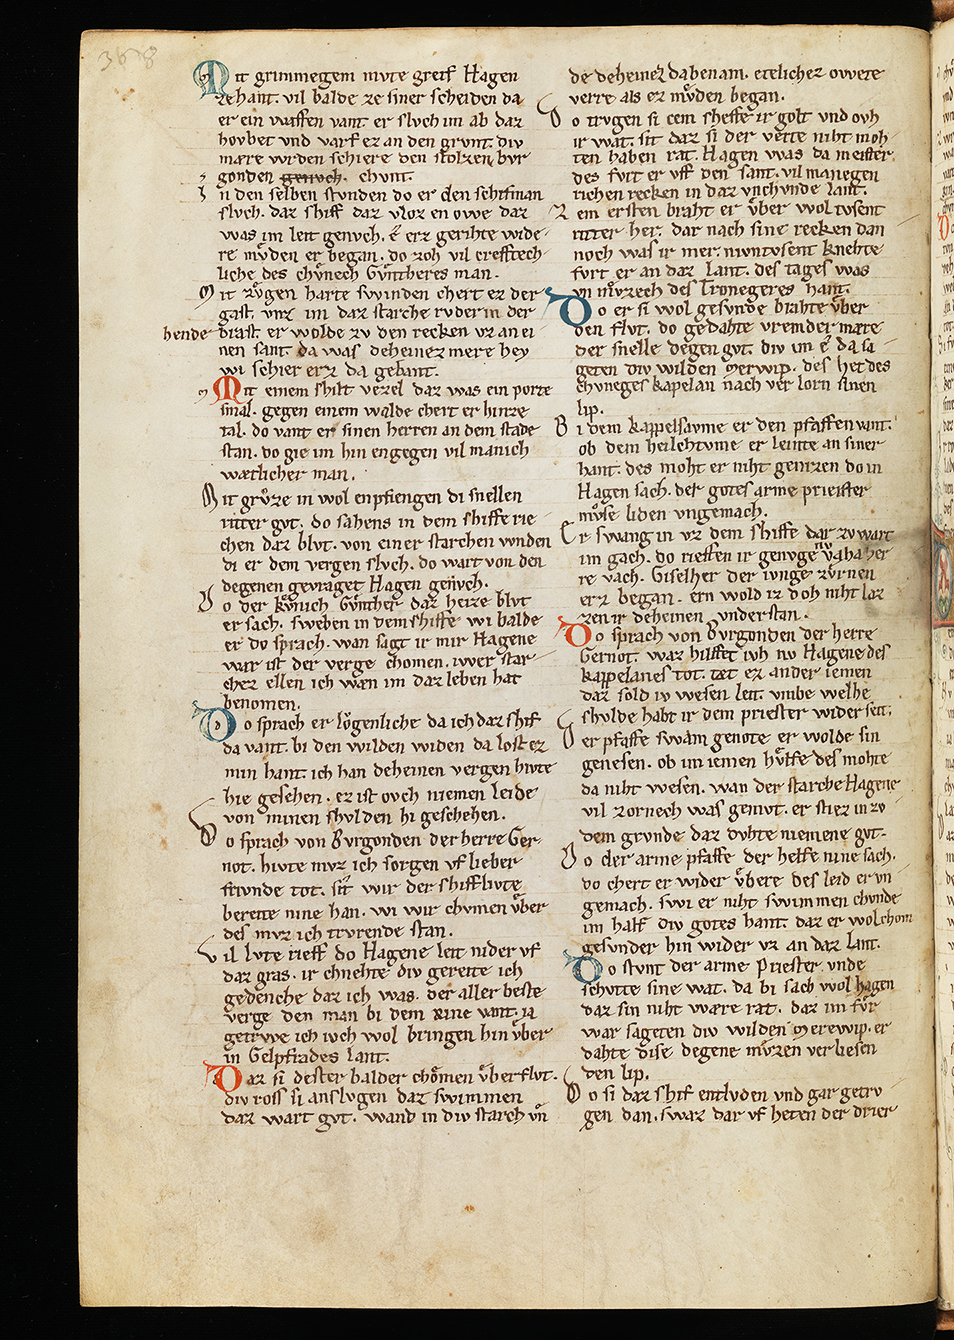 368
Mit grimmegem mvte greif Hagen
zehant. vil balde ze siner scheiden da
er ein waffen vant. er slvch im ab daz
hovbet vnd varf ez an den grvnt. div
mære wrden schiere den stolzen bvr
gonden genvch. chvnt.
In den selben stvnden do er den schifman
slvch. daz shiff daz vloz en owe daz
was im leit genvch. ê erz gerihte wide
re mvͦden er began. do zoh vil crefftech
liche des chvͤnech Gvͤntheres man.
Mit zvͤgen harte swinden chert ez der
gast. vnz im daz starche rvder in der
hende brast. er wolde zv den recken vz an ei
nen sant. da was deheinez mere hey
wi schier erz da gebant.
Mit einem shilt vezel daz was ein porte
smal. gegen einem walde chert er hinze
tal. do vant er sinen herren an dem stade
stan. do gie im hin engegen vil manich
wætlicher man.
Mit grvͦze in wol enpfiengen di snellen
ritter gvt. do sahens in dem shiffe rie
chen daz blvt. von einer starchen wnden
di er dem vergen slvch. do wart von den
degenen gevraget Hagen genvch.
Do der kvͤnich Gvͤnther daz heize blvt
er sach. sweben in dem shiffe wi balde
er do sprach. wan sagt ir mir Hagene
war ist der verge chomen. iwer star
chez ellen ich wæn im daz leben hat
benomen.
Do sprach er lovgenliche da ich daz shif
da vant. bi den wilden widen da lost ez
min hant. ich han deheinen vergen hivte
hie gesehen. ez ist ovch niemen leide
von minen shvlden hi geschehen.
Do sprach von Bvrgonden der herre Ger
not. hivte mvz ich sorgen vf lieber
frivnde tot. sit wir der shifflivte
bereite nine han. wi wir chvmen vͤber
des mvz ich trvrende stan.
Vil lvte rieff do Hagene leit nider vf
daz gras. ir chnehte div gereite ich
gedenche daz ich was. der aller beste
verge den man bi dem Rine vant. ia
getrwe ich iwch wol bringen hin vͤber
in Gelpfrades lant.
Daz si dester balder chomen vͤber flvt.
div ross si anslvgen daz swimmen
daz wart gvt. wand in div starch vn̄
de deheinez da benam. etelichez owete
verre als ez mvͦden began.
Do trvgen si cem sheffe ir golt vnd ovh
ir wat. sit daz si der verte niht moh
ten haben rat. Hagen was da meister.
des fvrt er vff den sant. vil manegen
richen recken in daz vnchvnde lant.
Zem ersten braht er vͤber wol tvsent
ritter her. dar nach sine recken dan
noch was ir mer. nivntvsent knehte
fvrt er an daz lant. des tages was
vn mvͤzech des Tronegeres hant.
Do er si wol gesvnde brahte vͤber
den flvt. do gedahte vremder mære
der snelle degen gvt. div im ê da sa
geten div wilden merwip. des het des
chvneges kapelan nach ver lorn sinen
lip.
Bi dem kappelsovme er den pfaffen vant.
ob dem heilehtvme er leinte an siner
hant. des moht er niht genizen do in
Hagen sach. der gotes arme prieister
mvͦse liden vngemach.
Er swang in vz dem shiffe dar zv wart
im gach. do rieffen ir genvge nv vaha her
re vach. Giselher der ivnge zvͤrnen
erz began. ern wold iz doh niht laz
zen ir deheinen vnder stan.
Do sprach von Bvrgonden der herre
Gernot. waz hilffet ivh nv Hagene des
kappelanes tot. tæt ez ander iemen
daz sold iv wesen leit. vmbe welhe
shvlde habt ir dem priester wider seit.
Der pfaffe swam genote er wolde sin
genesen. ob im iemen hvͤlfe des mohte
da niht wesen. wan der starche Hagene
vil zornech was gemvt. er stiez in zv
dem grvnde daz dvhte niemene gvt.
Do der arme pfaffe der helfe nine sach.
do chert er wider vͤbere des leid er vn
gemach. swi er niht swimmen chvnde
im half div gotes hant. daz er wol chom
gesvnder hin wider vz an daz lant.
Do stvnt der arme Priester vnde
schvtte sine wat. da bi sach wol hagen
daz sin niht wære rat. daz im fvͤr
war sageten div wilden merewip. er
dahte dise degene mvͤzen verliesen
den lip.
Do si daz shif entlvden vnd gar getrv
gen dan. swaz dar vf heten der drier